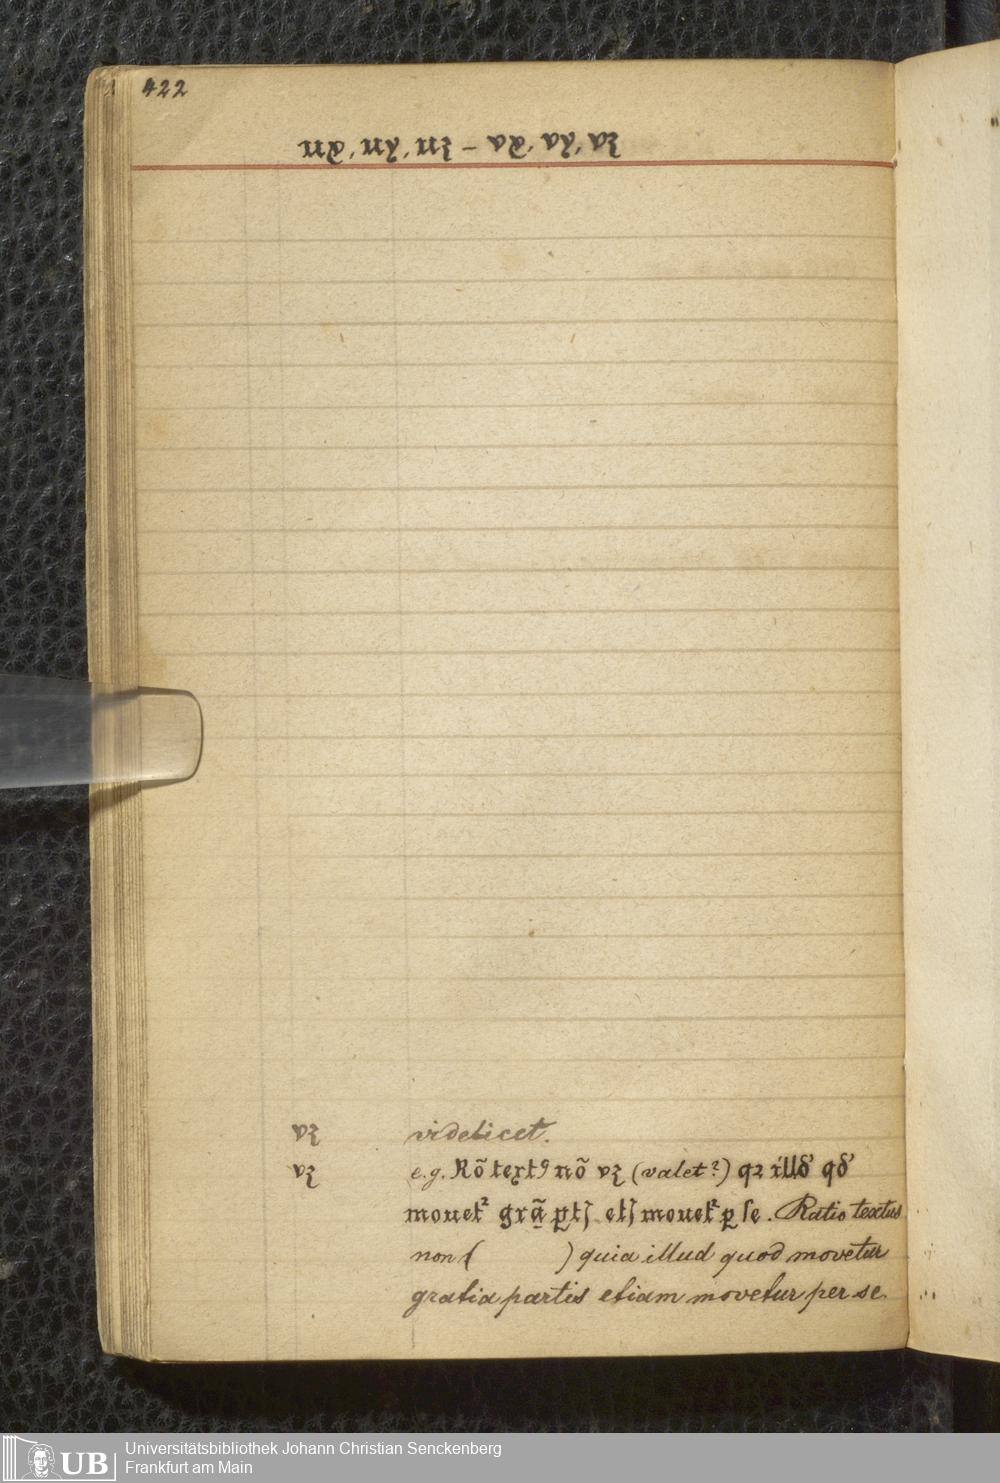 422
vꝫ videlicet.
vꝫ e.g. Rõ textꝰ nõ vꝫ (valet?) qꝛ illð qð
mouet² grã ꝑtꝭ etꝭ mouet² ꝑ ſe. Ratio textus
non ( ) quia illud quod movetur
gratia partis etiam movetur per se
Universitätsbibliothek Johann Christian Senckenberg
UB Frankfurt am Main